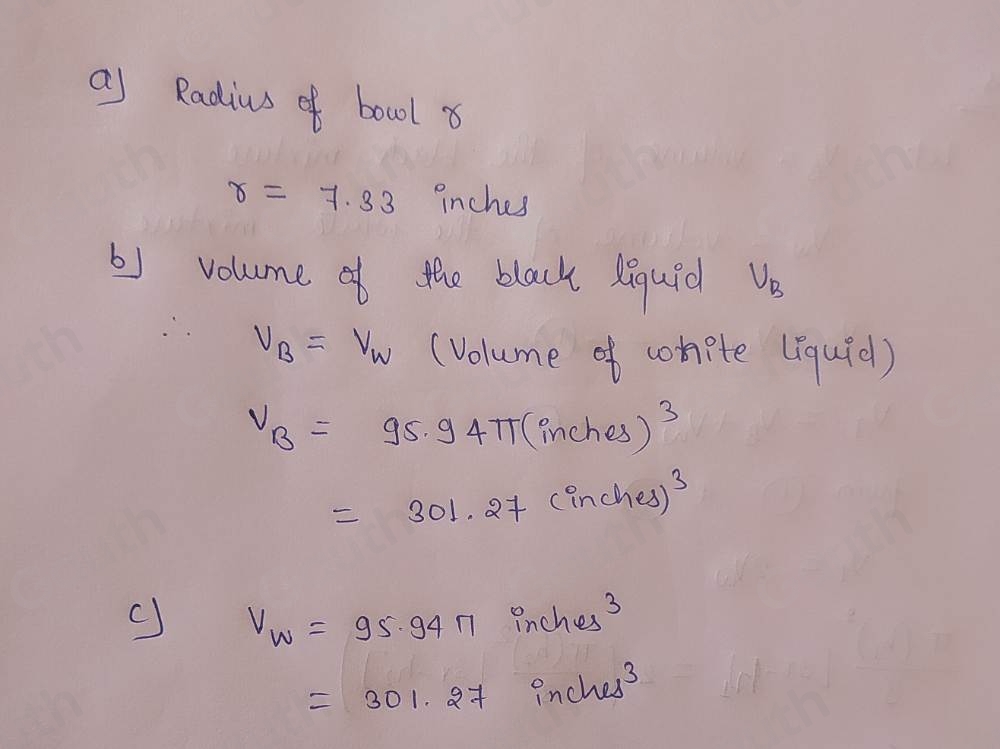 a) Radius of bowl r
r = 7.33 inches
b) Volume of the black liquid V_B
∴ V_B = V_W (Volume of white liquid)
V_B = 95.94π(inches)³
= 301.27 (inches)³
c) V_W = 95.94π inches³
= 301.27 inches³